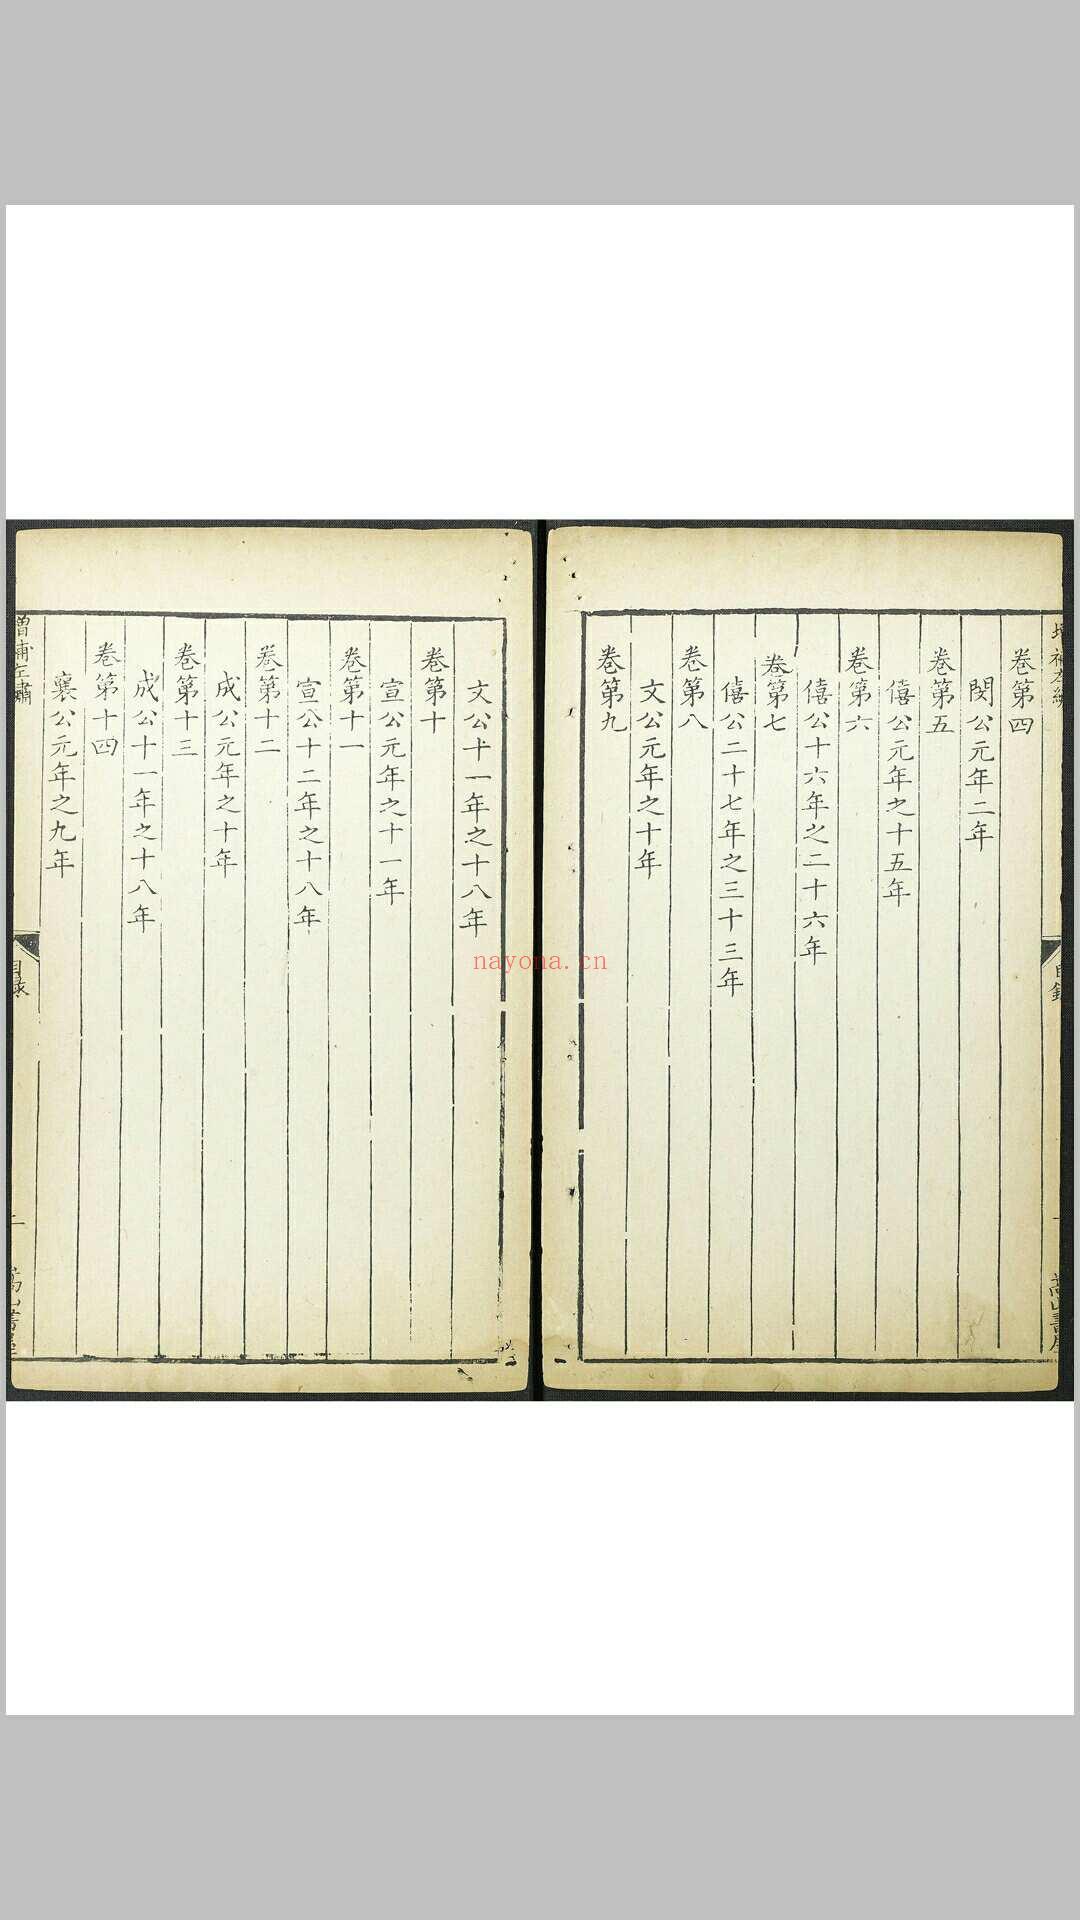 卷第四
閔公元年二年
卷第五
僖公元年之十五年
卷第六
僖公十六年之二十六年
卷第七
僖公二十七年之三十三年
卷第八
文公元年之十年
卷第九
文公十一年之十八年
卷第十
宣公元年之十一年
卷第十一
宣公十二年之十八年
卷第十二
成公元年之十年
卷第十三
成公十一年之十八年
卷第十四
襄公元年之九年
目錄
二
nayona.cn